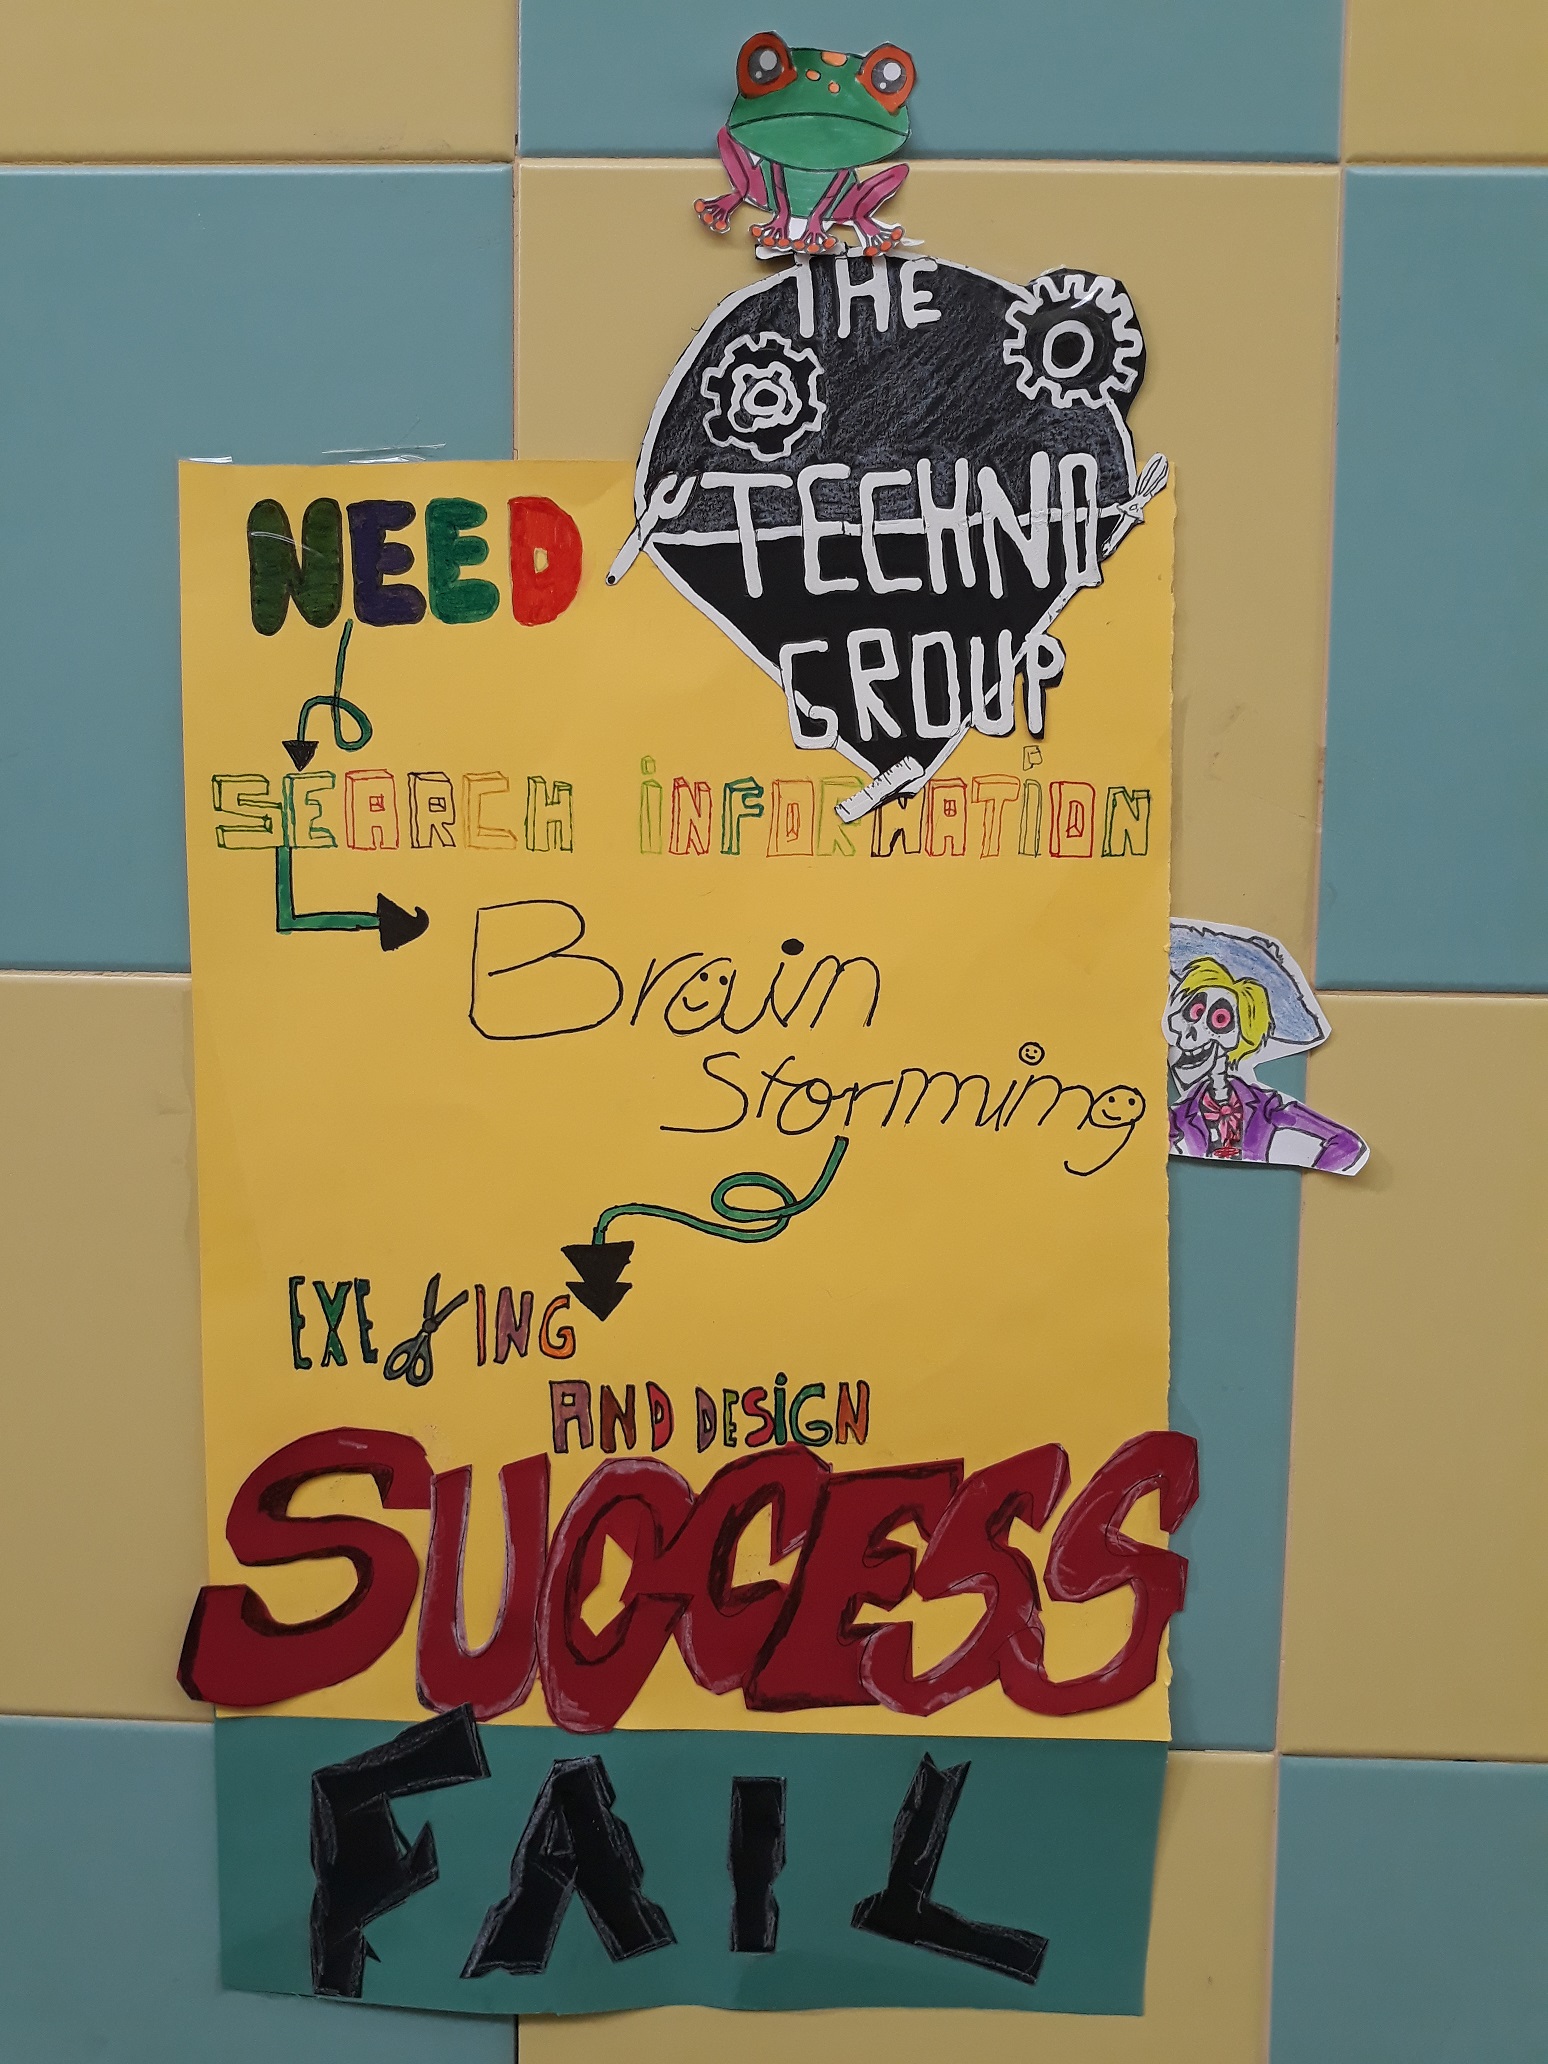 THE
TECHNO
GROUP
NEED
SEARCH INFORMATION
Brain
Storming
EXE ING
AND DESIGN
SUCCESS
FAIL